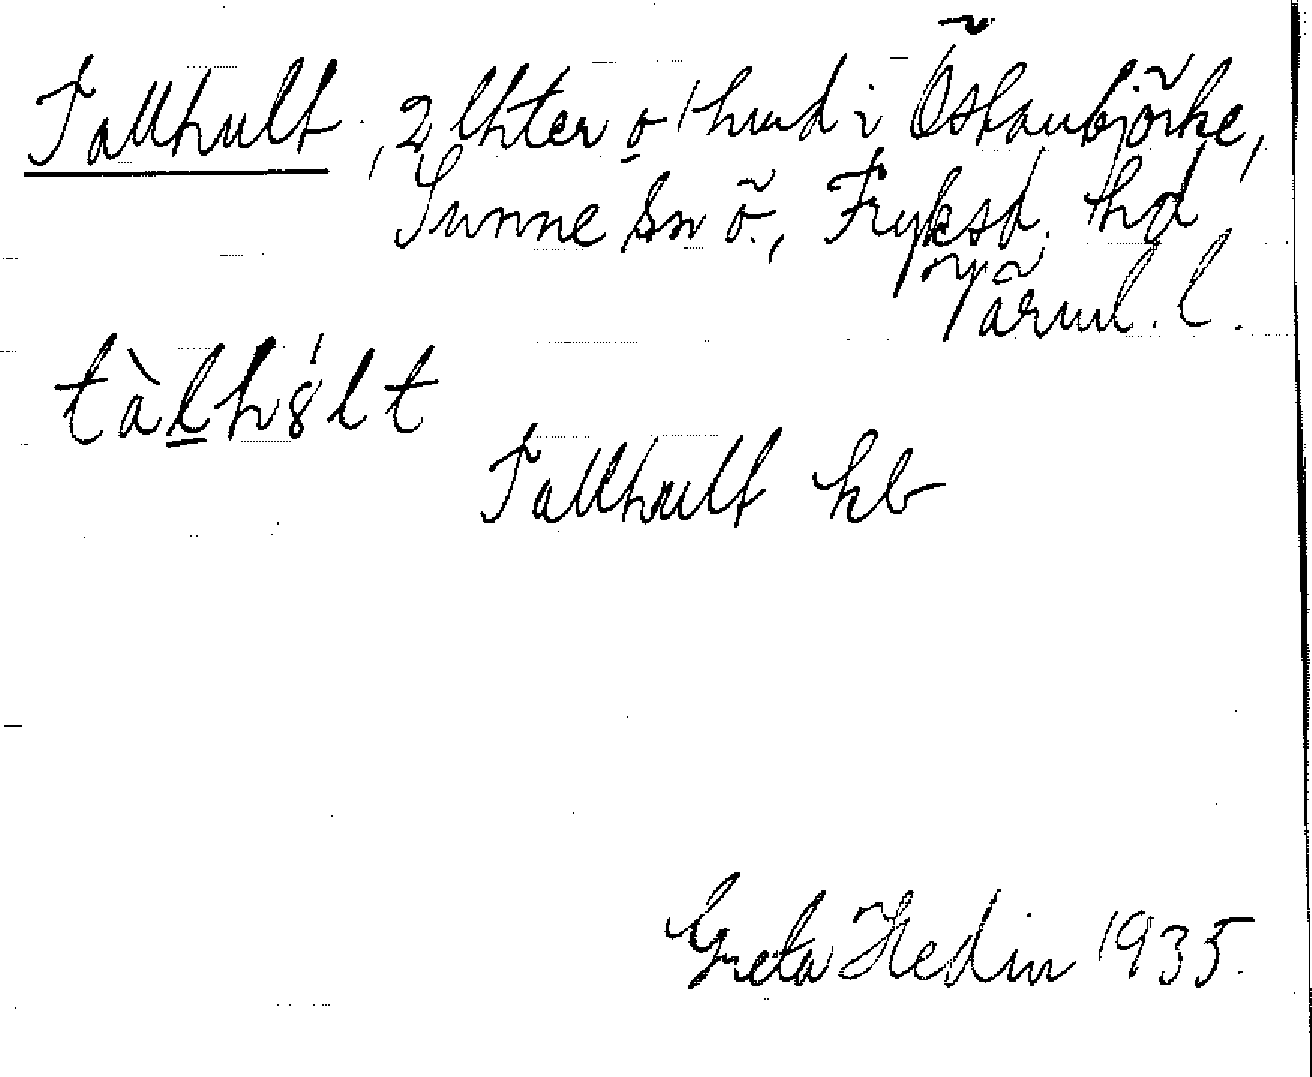 Tallhult, 2 lhter o 1 hmd i Östanbjörke,
Sunne sn ö., Fryksd. hd
Värml. l.
tàlh8́lt
Tallhult kb
Greta Hedin 1935.